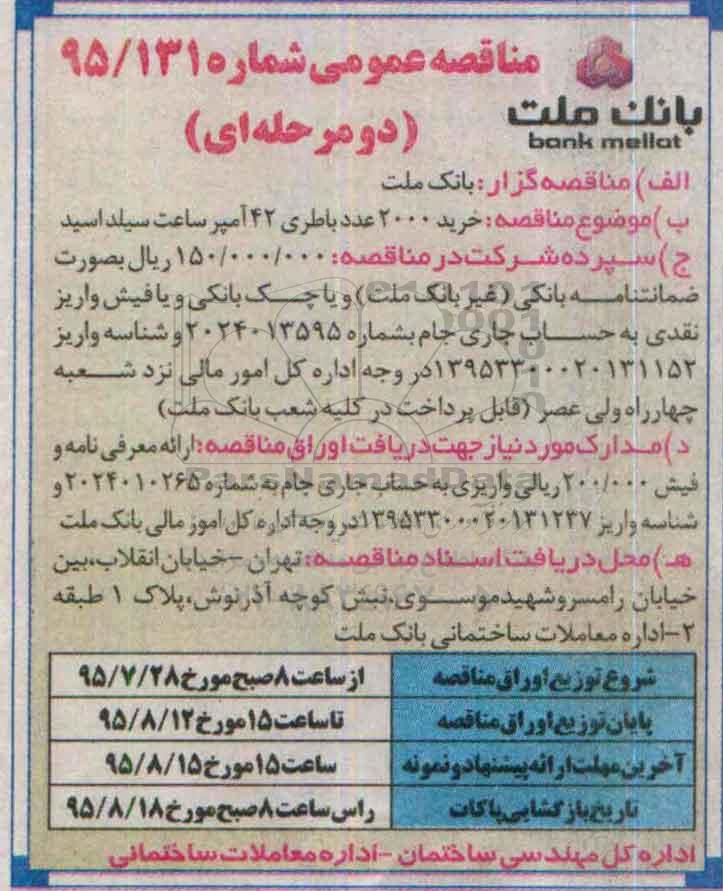 مناقصه عمومی شماره ۹۵/۱۳۱
(دو مرحله‌ای)
بانک ملت
bank mellat
الف) مناقصه گزار: بانک ملت
ب) موضوع مناقصه: خرید ۲۰۰۰ عدد باطری ۴۲ آمپر ساعت سیلد اسید
ج) سپرده شرکت در مناقصه: ۱۵۰/۰۰۰/۰۰۰ ریال بصورت
ضمانتنامه بانکی (غیر بانک ملت) و یا چک بانکی و یا فیش واریز
نقدی به حساب جاری جام بشماره ۲۰۲۴۰۱۳۵۹۵ و شناسه واریز
۱۳۹۵۳۳۰۰۰۲۰۱۳۱۱۵۲ در وجه اداره کل امور مالی نزد شعبه
چهارراه ولی عصر (قابل پرداخت در کلیه شعب بانک ملت)
د) مدارک مورد نیاز جهت دریافت اوراق مناقصه: ارائه معرفی نامه و
فیش ۲۰۰/۰۰۰ ریالی واریزی به حساب جاری جام به شماره ۲۰۲۴۰۱۰۲۶۵ و
شناسه واریز ۱۳۹۵۳۳۰۰۰۴۰۱۳۱۲۳۷ در وجه اداره کل امور مالی بانک ملت
هـ) محل دریافت اسناد مناقصه: تهران - خیابان انقلاب، بین
خیابان رامسر و شهید موسوی، نبش کوچه آذرنوش، پلاک ۱ طبقه
۲- اداره معاملات ساختمانی بانک ملت
شروع توزیع اوراق مناقصه از ساعت ۸ صبح مورخ ۹۵/۷/۲۸
پایان توزیع اوراق مناقصه تا ساعت ۱۵ مورخ ۹۵/۸/۱۲
آخرین مهلت ارائه پیشنهاد و نمونه ساعت ۱۵ مورخ ۹۵/۸/۱۵
تاریخ بازگشایی پاکات راس ساعت ۸ صبح مورخ ۹۵/۸/۱۸
اداره کل مهندسی ساختمان - اداره معاملات ساختمانی